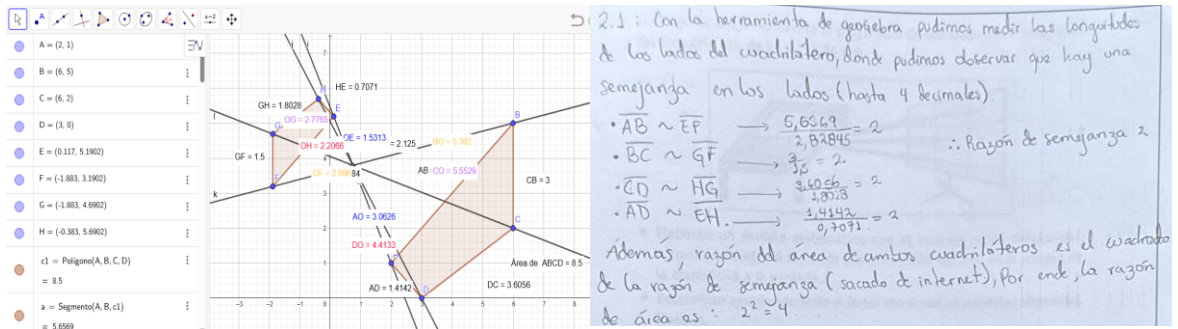 A = (2, 1)
B = (6, 5)
C = (6, 2)
D = (3, 0)
E = (0.117, 5.1902)
F = (-1.883, 3.1902)
G = (-1.883, 4.6902)
H = (-0.383, 5.6902)
c1 = Polígono(A, B, C, D)
= 8.5
a = Segmento(A, B, c1)
= 5.6569
HE = 0.7071
GH = 1.8028
OG = 2.7765
OE = 1.5313
OH = 2.2066
= 2.125
BO = 5.392
GF = 1.5
84
AB
CO = 5.5529
CB = 3
AO = 3.0626
DO = 4.4133
Área de ABCD = 8.5
AD = 1.4142
DC = 3.6056
2.1: Con la herramienta de geogebra pudimos medir las longitudes
de los lados del cuadrilátero, donde pudimos observar que hay una
semejanza en los lados (hasta 4 decimales).
• AB ~ EP → 5,6569/2,82845 = 2
∴ Razón de semejanza 2
• BC ~ GF → 3/1,5 = 2
• CD ~ HG → 3,6056/1,8028 = 2
• AD ~ EH. → 1,4142/0,7071 = 2
Además, razón del area de ambos cuadriláteros es el cuadrado
de la razón de semejanza (sacado de internet), Por ende, la razón
de área es: 2² = 4